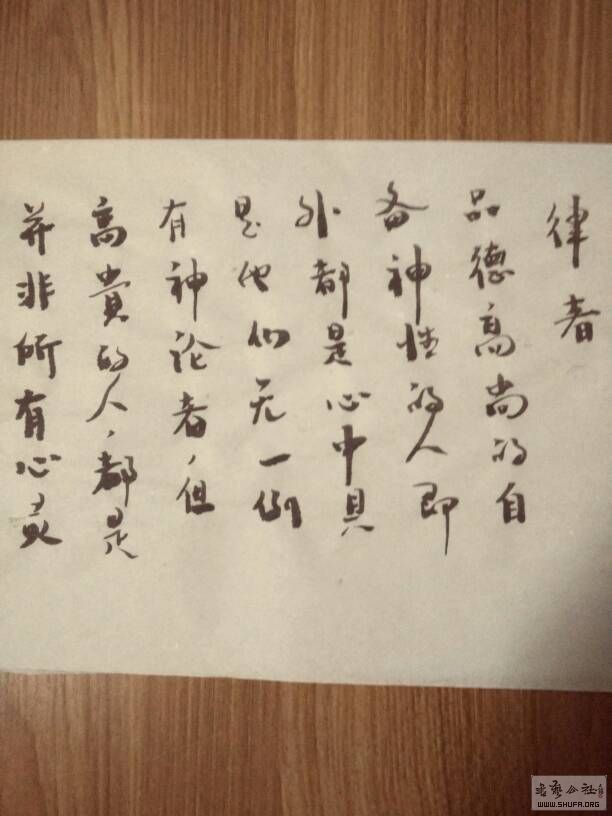 并非所有心灵
高貴的人，都是
有神论者，但
是他们无一例
外都是心中具
备神性的人即
品德高尚的自
律者
書藝公社
WWW.SHUFA.ORG